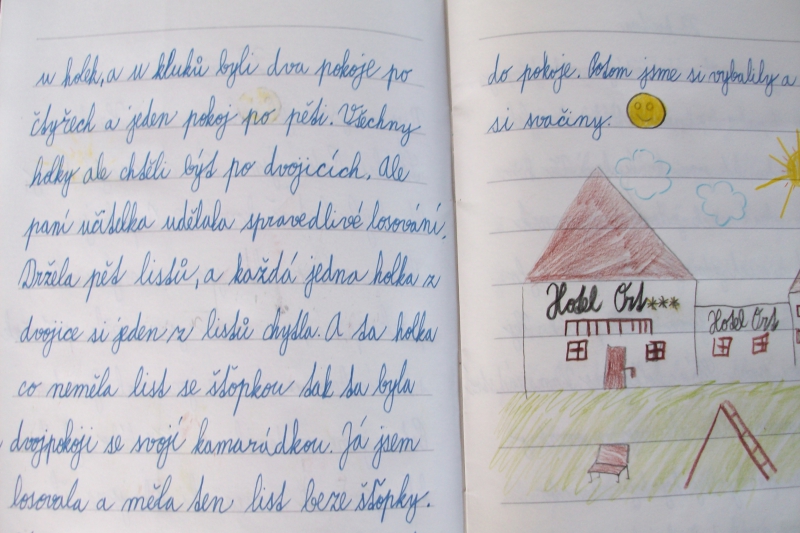 u holek, a u kluků byli dva pokoje po
čtyřech a jeden pokoj po pěti. Všechny
holky ale chtěli být po dvojicích. Ale
paní učitelka udělala spravedlivé losování.
Držela pět listů, a každá jedna holka z
dvojice si jeden z listů chytla. A ta holka
co neměla list se šťopkou tak ta byla
dvojpokoji se svojí kamarádkou. Já jsem
losovala a měla ten list beze šťopky.
do pokoje. Potom jsme si vybalily a
si svačiny.
Hotel Ort***
Hotel Ort